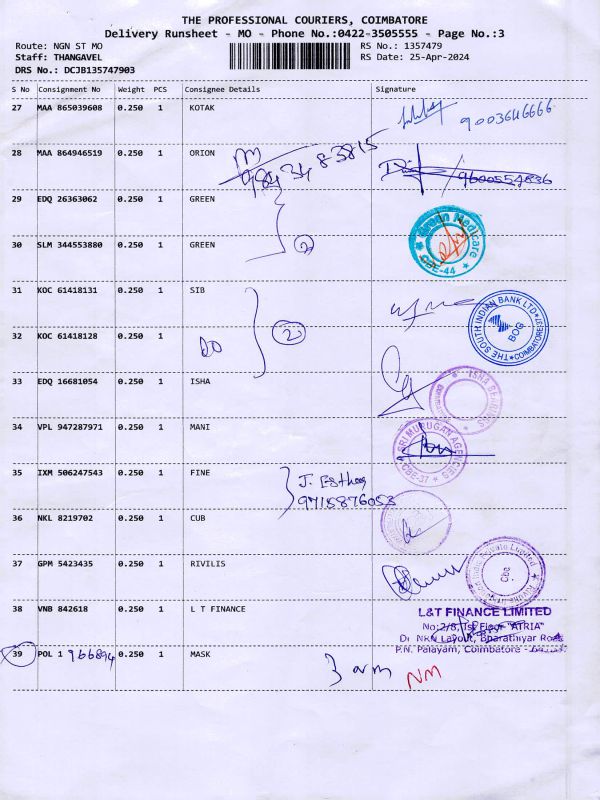 THE PROFESSIONAL COURIERS, COIMBATORE
Delivery Runsheet - MO - Phone No.:0422-3505555 - Page No.:3
Route: NGN ST MO RS No.: 1357479
Staff: THANGAVEL RS Date: 25-Apr-2024
DRS No.: DCJB135747903
S No Consignment No Weight PCS Consignee Details Signature
27 MAA 865039608 0.250 1 KOTAK 9003646666
28 MAA 864946519 0.250 1 ORION 9843483815 9600554836
29 EDQ 26363062 0.250 1 GREEN
30 SLM 344553880 0.250 1 GREEN 2 Green Medicare CBE-44
31 KOC 61418131 0.250 1 SIB
THE SOUTH INDIAN BANK LTD COIMBATORE BOG
32 KOC 61418128 0.250 1 DO 2
33 EDQ 16681054 0.250 1 ISHA ISHA
34 VPL 947287971 0.250 1 MANI SRI MURUGAN AGENCIES CBE-37
35 IXM 506247543 0.250 1 FINE J. Esther
9715876053
36 NKL 8219702 0.250 1 CUB
37 GPM 5423435 0.250 1 RIVILIS Private Limited Cbe
38 VNB 842618 0.250 1 L T FINANCE L&T FINANCE LIMITED
No:2/8, 1st Floor "ATRIA"
NKN Layout, Bharathiyar Road
P.N. Palayam, Coimbatore -
39 POL 1 966894 0.250 1 MASK arm NM